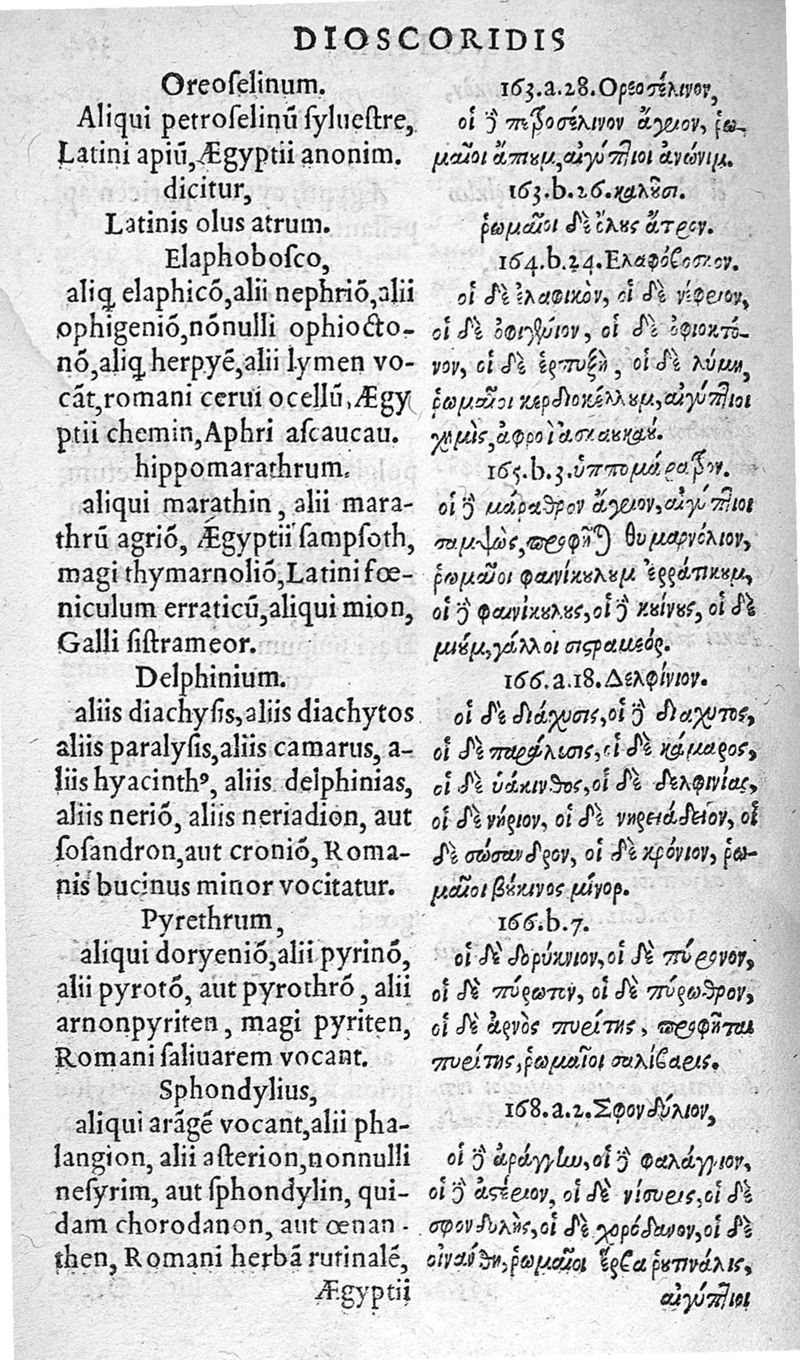 DIOSCORIDIS
Oreoſelinum.
Aliqui petroſelinū ſylueſtre,
Latini apiū, Ægyptii anonim.
dicitur,
Latinis olus atrum.
Elaphoboſco,
aliq̨ elaphicō, alii nephriō, alii
ophigeniō, nōnulli ophiocto-
nō, aliq̨ herpyē, alii lymen vo-
cāt, romani cerui ocellū, Ægy
ptii chemin, Aphri aſcaucau.
hippomarathrum.
aliqui marathin, alii mara-
thrū agriō, Ægyptii ſampſoth,
magi thymarnoliō, Latini fœ-
niculum erraticū, aliqui mion,
Galli ſiſtrameor.
Delphinium.
aliis diachyſis, aliis diachytos
aliis paralyſis, aliis camarus, a-
liis hyacinthꝰ, aliis delphinias,
aliis neriō, aliis neriadion, aut
ſoſandron, aut croniō, Roma-
nis bucinus minor vocitatur.
Pyrethrum,
aliqui doryeniō, alii pyrinō,
alii pyrotō, aut pyrothrō, alii
arnonpyriten, magi pyriten,
Romani ſaliuarem vocant.
Sphondylius,
aliqui arāgē vocant, alii pha-
langion, alii aſterion, nonnulli
neſyrim, aut ſphondylin, qui-
dam chorodanon, aut œnan-
then, Romani herbā rutinalē,
Ægyptii
163.a.28. Ορεοσέλινον,
οἱ ὃ πετροσέλινον ἄγριον, ῥω-
μαῖοι ἄπιουμ, αἰγύπτιοι ἀνώνιμ.
163.b.26. καλοῦσι.
ῥωμαῖοι δὲ ὄλους ἄτρον.
164.b.24. Ελαφόβοσκον.
οἱ δὲ ἐλαφικὸν, οἱ δὲ νέφριον,
οἱ δὲ ὀφιγένιον, οἱ δὲ ὀφιοκτό-
νον, οἱ δὲ ἑρπυξὴ, οἱ δὲ λύμη,
ῥωμαῖοι κερβιοκέλλουμ, αἰγύπτιοι
χημὶς, ἀφροὶ ἀσκαυκαύ.
165.b.3. ὑππομάραθρον.
οἱ ὃ μάραθρον ἄγριον, αἰγύπτιοι
σαμψὼς, προφῆται θυμαρνόλιον,
ῥωμαῖοι φαινίκουλουμ ἐρράτικουμ,
οἱ ὃ φαινίκουλους, οἱ ὃ κυίνους, οἱ δὲ
μιούμ, γάλλοι σιστραμεός.
166.a.18. Δελφίνιον.
οἱ δὲ διάχυσις, οἱ ὃ διαχυτος,
οἱ δὲ παράλυσις, οἱ δὲ κάμαρος,
οἱ δὲ ὑάκινθος, οἱ δὲ δελφινίας,
οἱ δὲ νήριον, οἱ δὲ νηρειάδειον, οἱ
δὲ σώσανδρον, οἱ δὲ κρόνιον, ῥω-
μαῖοι βούκινος μίνορ.
166.b.7.
οἱ δὲ δορύκνιον, οἱ δὲ πύρινον,
οἱ δὲ πύρωτιν, οἱ δὲ πύρωθρον,
οἱ δὲ ἀρνὸς πυρίτης, προφῆται
πυρίτης, ῥωμαῖοι σαλίβαρις.
168.a.2. Σφονδύλιον,
οἱ ὃ ἀράγγην, οἱ ὃ φαλάγγιον,
οἱ ὃ ἀστέριον, οἱ δὲ νίσυρις, οἱ δὲ
σφονδυλὴς, οἱ δὲ χορόδανον, οἱ δὲ
οἰνάνθη, ῥωμαῖοι ἕρβα ῥουτινάλις,
αἰγύπτιοι